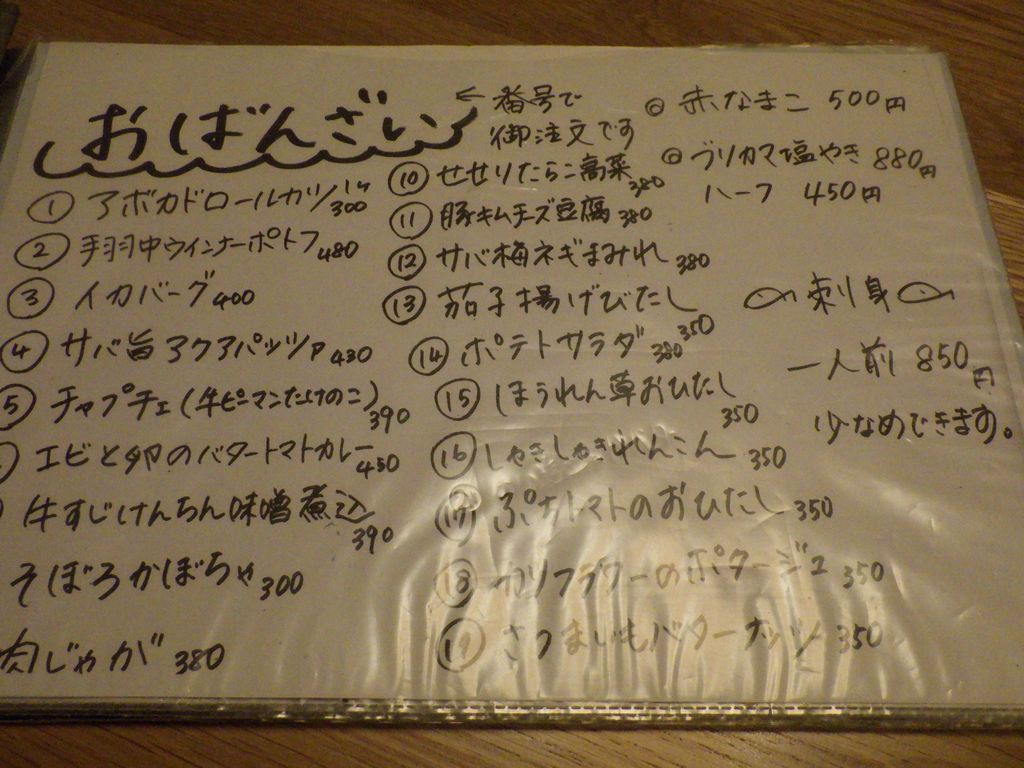 おばんざい
←番号で
御注文です
① アボカドロールカツ1ケ300
② 手羽中ウインナーポトフ480
③ イカバーグ400
④ サバ旨アクアパッツァ430
5 チャプチェ(牛ピーマンたけのこ)390
エビと卵のバタートマトカレー450
牛すじけんちん味噌煮込390
そぼろかぼちゃ300
肉じゃが380
⑩ せせりたらこ高菜380
⑪ 豚キムチーズ豆腐380
⑫ サバ梅ネギまみれ380
⑬ 茄子揚げびたし350
⑭ ポテトサラダ380
⑮ ほうれん草おひたし350
⑯ しゃきしゃきれんこん350
⑰ ぷちトマトのおひたし350
⑱ カリフラワーのポタージュ350
⑲ さつまいもバターナッツ350
◎ 赤なまこ 500円
◎ ブリカマ塩やき 880円
ハーフ 450円
刺身
一人前 850円
少なめできます。